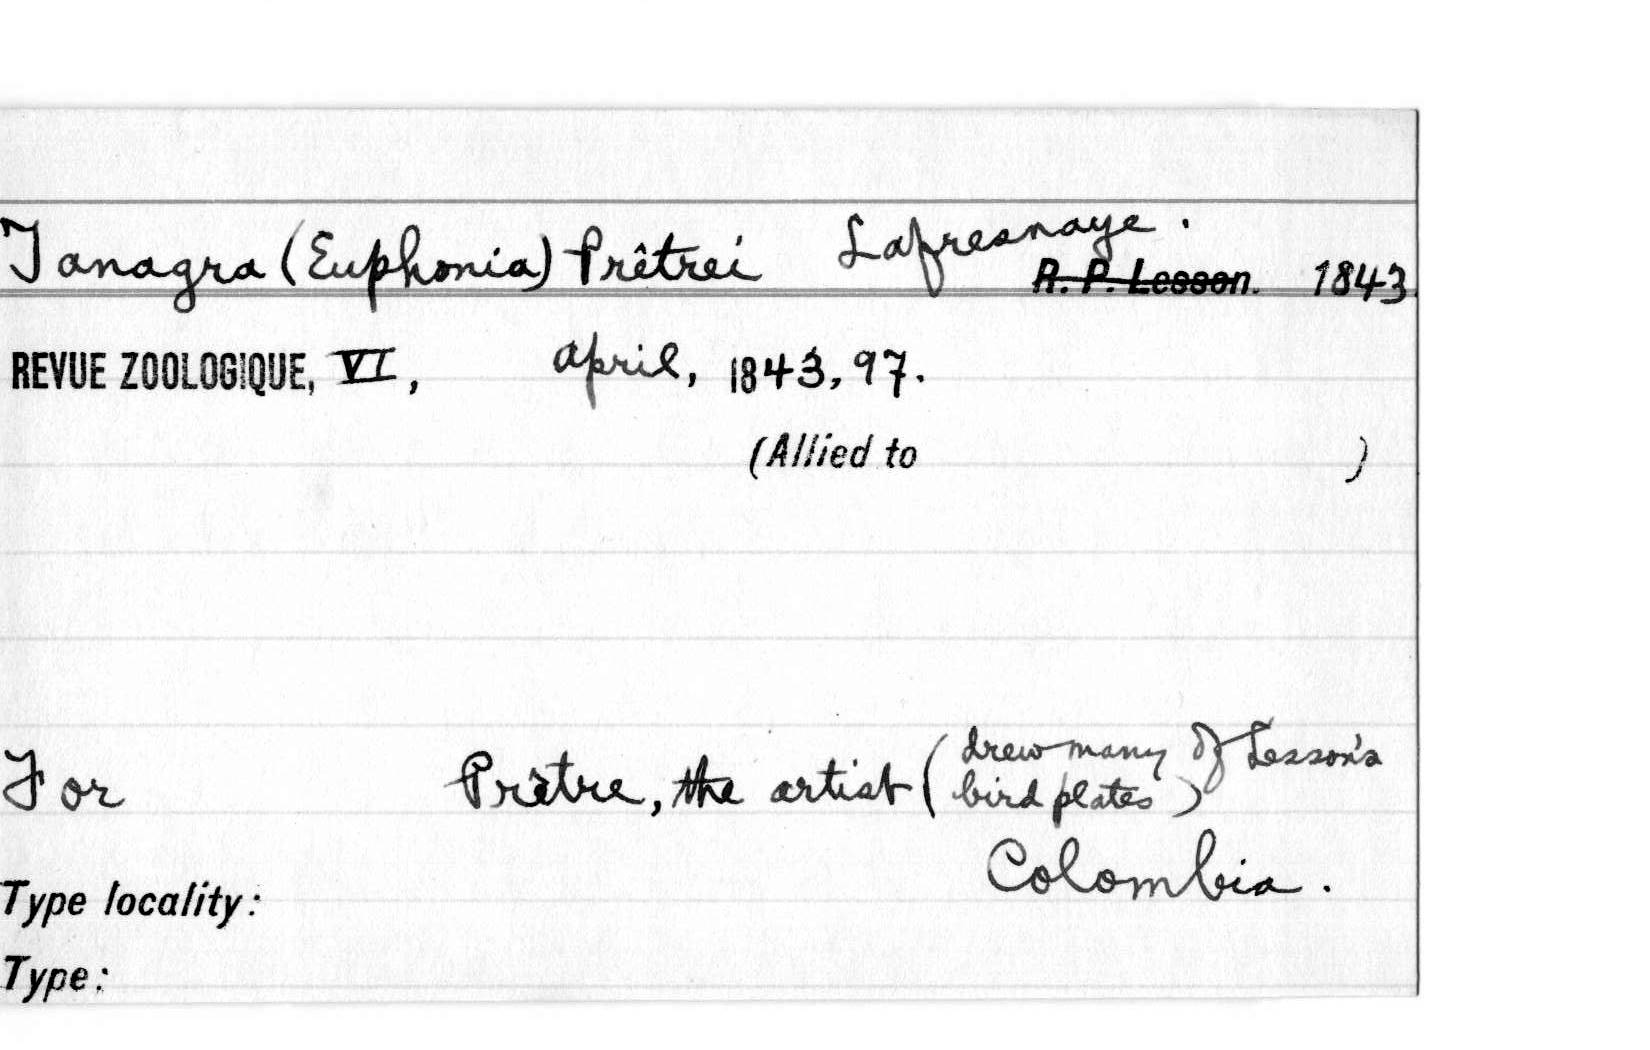 Tanagra (Euphonia) Prêtrei Lafresnaye.
R. P. Lesson. 1843.
REVUE ZOOLOGIQUE, VI, April, 1843, 97.
(Allied to )
For Prêtre, the artist (drew many of Lesson's
bird plates)
Colombia.
Type locality:
Type: